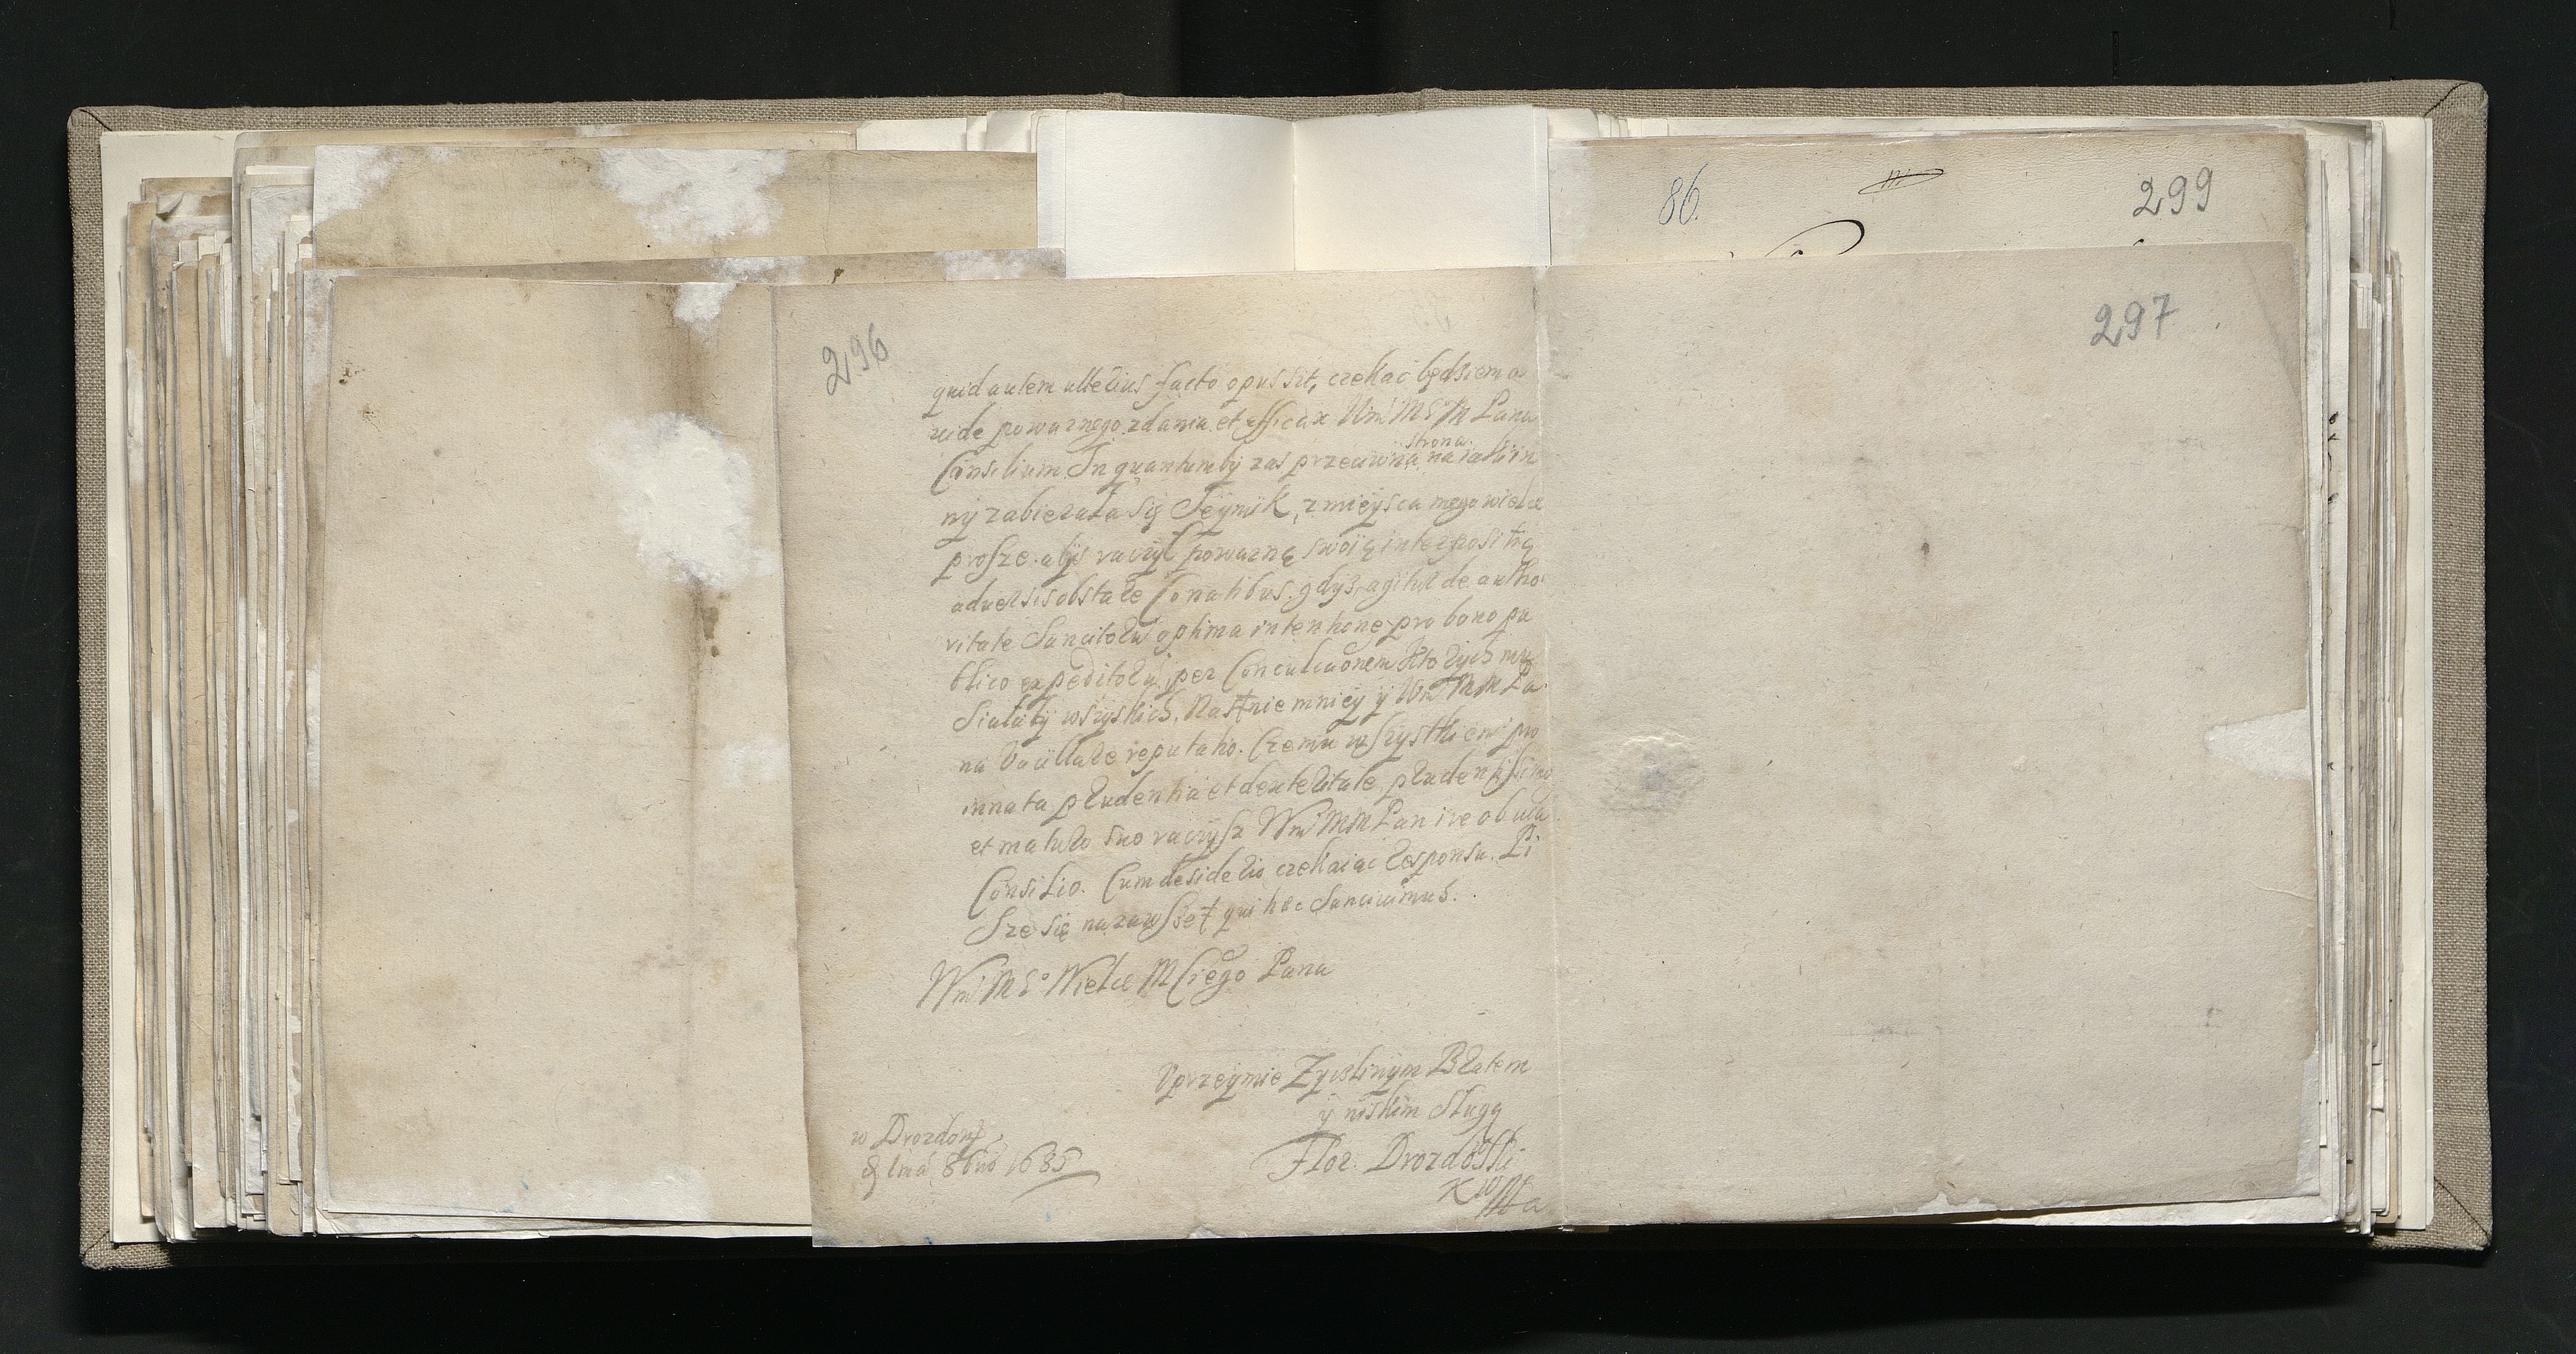 86.
299
297
296
quid autem ulterius facto opus sit, czekac będziem a
vide powaznego zdania et efficax Wm̃ M Pana
Consilium. In quantumby zas przeciwna strona na takow
ny zabierała się Seymik, z mieysca mego wielce
prosze. abys raczył powazną swoią interpositią
adversis obstare Conatibus. gdyz, agitur de autho
ritate Sancitorũ optima intentione pro bono pu
blico expeditorũ, per Conculcaõnem ktorych mu
siałaby wszyskich. Nas nie mniey y Wm̃ M M Pa
na Vacillare reputatio. Czemu wszystkiemu pro
innata prudentia et dexteritate prudentissimo
et maturo suo raczysz Wm̃ M M Pan ire obvia
Consilio. Cum desiderio czekaiac responsu. Pi
sze się na zawsze qui hæc Sancimus.
Wm̃ M Wielce M Ciego Pana
Vprzeymie Zyczliwym Bratem
y niskim Sługą
w Drozdow
8bris 1685
Flor. Drozdoski